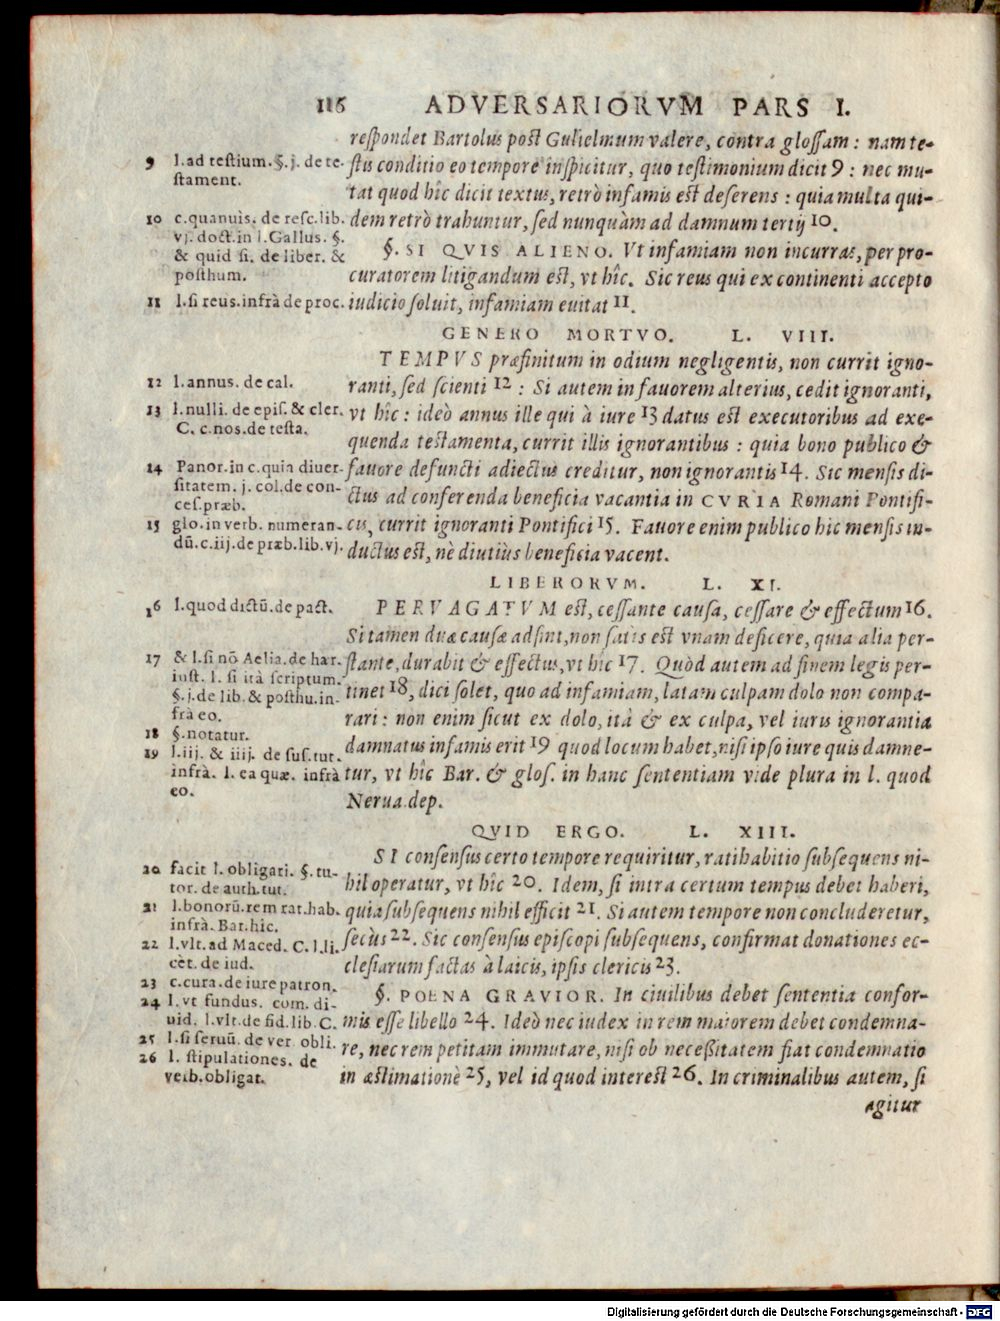 116 ADVERSARIORVM PARS I.
respondet Bartolus post Gulielmum valere, contra glossam: nam te-
stis conditio eo tempore inspicitur, quo testimonium dicit 9: nec mu-
tat quod hîc dicit textus, retrò infamis est deserens: quia multa qui-
dem retrò trahuntur, sed nunquàm ad damnum tertij 10.
§. SI QVIS ALIENO. Vt infamiam non incurras, per pro-
curatorem litigandum est, vt hîc. Sic reus qui ex continenti accepto
iudicio soluit, infamiam euitat 11.
GENERO MORTVO. L. VIII.
TEMPVS præfinitum in odium negligentis, non currit igno-
ranti, sed scienti 12: Si autem in fauorem alterius, cedit ignoranti,
vt hîc: ideò annus ille qui à iure 13 datus est executoribus ad exe-
quenda testamenta, currit illis ignorantibus: quia bono publico &
fauore defuncti adiectus creditur, non ignorantis 14. Sic mensis di-
ctus ad conferenda beneficia vacantia in CVRIA Romani Pontifi-
cis, currit ignoranti Pontifici 15. Fauore enim publico hic mensis in-
ductus est, nè diutiùs beneficia vacent.
LIBERORVM. L. XI.
PERVAGATVM est, cessante causa, cessare & effectum 16.
Si tamen duæ causæ adsint, non satis est vnam deficere, quia alia per-
stante, durabit & effectus, vt hîc 17. Quòd autem ad finem legis per-
tinet 18, dici solet, quo ad infamiam, latam culpam dolo non compa-
rari: non enim sicut ex dolo, ità & ex culpa, vel iuris ignorantia
damnatus infamis erit 19 quod locum habet, nisi ipso iure quis damne-
tur, vt hîc Bar. & glos. in hanc sententiam vide plura in l. quod
Nerua.dep.
QVID ERGO. L. XIII.
SI consensus certo tempore requiritur, ratihabitio subsequens ni-
hil operatur, vt hîc 20. Idem, si intra certum tempus debet haberi,
quia subsequens nihil efficit 21. Si autem tempore non concluderetur,
secùs 22. Sic consensus episcopi subsequens, confirmat donationes ec-
clesiarum factas à laicis, ipsis clericis 23.
§. POENA GRAVIOR. In ciuilibus debet sententia confor-
mis esse libello 24. Ideò nec iudex in rem maiorem debet condemna-
re, nec rem petitam immutare, nisi ob necessitatem fiat condemnatio
in æstimationè 25, vel id quod interest 26. In criminalibus autem, si
agitur
9 l.ad testium.§.j. de te-
stament.
10 c.quanuis. de resc.lib.
vj. doct.in l.Gallus. §.
& quid si. de liber. &
posthum.
11 l.si reus.infrà de proc.
12 l.annus. de cal.
13 l.nulli. de epis. & cler.
C. c.nos.de testa.
14 Panor.in c.quia diuer-
sitatem. j. col.de con-
ces.præb.
15 glo.in verb. numeran-
dū.c.iij.de præb.lib.vj.
16 l.quod dictū.de pact.
17 & l.si nō Aelia.de har.
iust. l. si ità scriptum.
§.j.de lib. & posthu.in-
frà eo.
18 §.notatur.
19 l.iij. & iiij. de sus.tut.
infrà. l. ea quæ. infrà
eo.
20 facit l. obligari. §. tu-
tor. de auth.tut.
21 l.bonorū.rem rat.hab.
infrà. Bar.hic.
22 l.vlt.ad Maced. C.l.li.
cèt. de iud.
23 c.cura.de iure patron.
24 l.vt fundus. com. di-
uid. l.vlt.de fid.lib.C.
25 l.si seruū. de ver. obli.
26 l. stipulationes. de
verb.obligat.
Digitalisierung gefördert durch die Deutsche Forschungsgemeinschaft - DFG